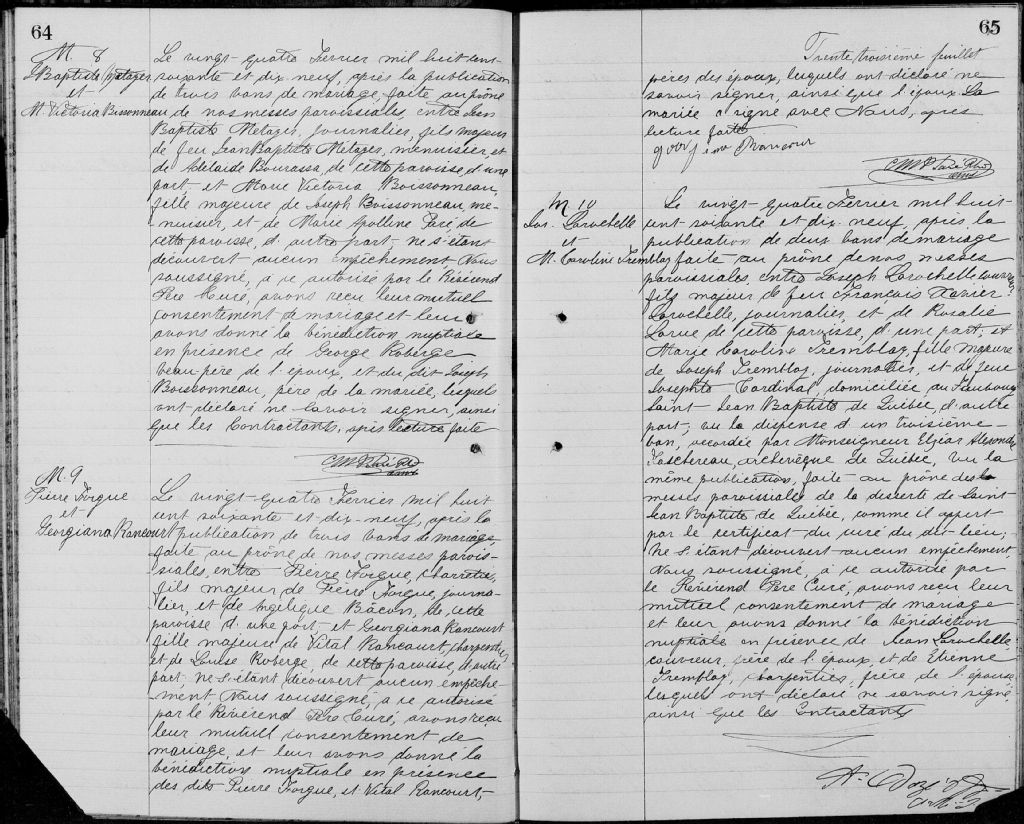 64
M. 8
J Baptiste Métayer
et
M. Victoria Bissonneau
Le vingt-quatre Février mil huit-cent-
soixante et dix-neuf, après la publication
de trois bans de mariage, faite au prône
de nos messes paroissiales, entre Jean
Baptiste Métayer, journalier, fils majeur
de feu Jean Baptiste Métayer, menuisier, et
de Adélaïde Bourassa, de cette paroisse, d'une
part, et Marie Victoria Boissonneau,
fille majeure de Joseph Boissonneau, me-
nuisier, et de Marie Apolline Paré de
cette paroisse, d'autre part- ne s'étant
découvert aucun empêchement, Nous
soussigné, à ce autorisé par le Révérend
Père Curé, avons reçu leur mutuel
consentement de mariage et leur
avons donné la bénédiction nuptiale
en présence de George Roberge
beau père de l'époux, et du dit Joseph
Boissonneau, père de la mariée, lesquels
ont déclaré ne savoir signer, ainsi
que les Contractants, après lecture faite
M. 9
Pierre Forgue
et
Georgiana Rancourt
Le vingt-quatre Février mil huit
cent soixante et dix-neuf, après la
publication de trois bans de mariage
faite au prône de nos messes parois-
siales, entre Pierre Forgue, charretier,
fils majeur de Pierre Forgue, journa-
lier, et de Angélique Bacon, de cette
paroisse d'une part, et Georgiana Rancourt
fille majeure de Vital Rancourt, charpentier,
et de Louise Roberge, de cette paroisse, d'autre
part- ne s'étant découvert aucun empêche-
ment, Nous soussigné, à ce autorisé
par le Révérend Père Curé, avons reçu
leur mutuel consentement de
mariage, et leur avons donné la
bénédiction nuptiale en présence
des dits Pierre Forgue, et Vital Rancourt,
65
Trente troisième feuillet
pères des époux, lesquels ont déclaré ne
savoir signer, ainsi que l'époux. La
mariée a signé avec Nous, après
lecture faite
Rancour
M. 10
Jos. Larochelle
et
M. Caroline Tremblay
Le vingt-quatre Février mil huit-
cent-soixante et dix-neuf, après la
publication de deux bans de mariage
faite au prône de nos messes
paroissiales, entre Joseph Larochelle couvreur
fils majeur de feu François Xavier
Larochelle, journalier, et de Rosalie
Larue de cette paroisse, d'une part; et
Marie Caroline Tremblay, fille majeure
de Joseph Tremblay, journalier, et de feue
Josephte Cardinal, domiciliée au Faubourg
Saint-Jean Baptiste de Québec, d'autre
part; vu la dispense d'un troisième
ban, accordée par Monseigneur Elzéar Alexandre
Taschereau, archevêque de Québec, vu la
même publication, faite au prône des
messes paroissiales de la desserte de Saint-
Jean Baptiste de Québec, comme il appert
par le certificat du curé du dit-lieu;
Ne s'étant découvert aucun empêchement,
Nous soussigné, à ce autorisé par
le Révérend Père Curé, avons reçu leur
mutuel consentement de mariage
et leur avons donné la bénédiction
nuptiale en présence de Jean Larochelle
couvreur, frère de l'époux, et de Etienne
Tremblay, charpentier, frère de l'épouse,
lesquels ont déclaré ne savoir signer,
ainsi que les Contractants